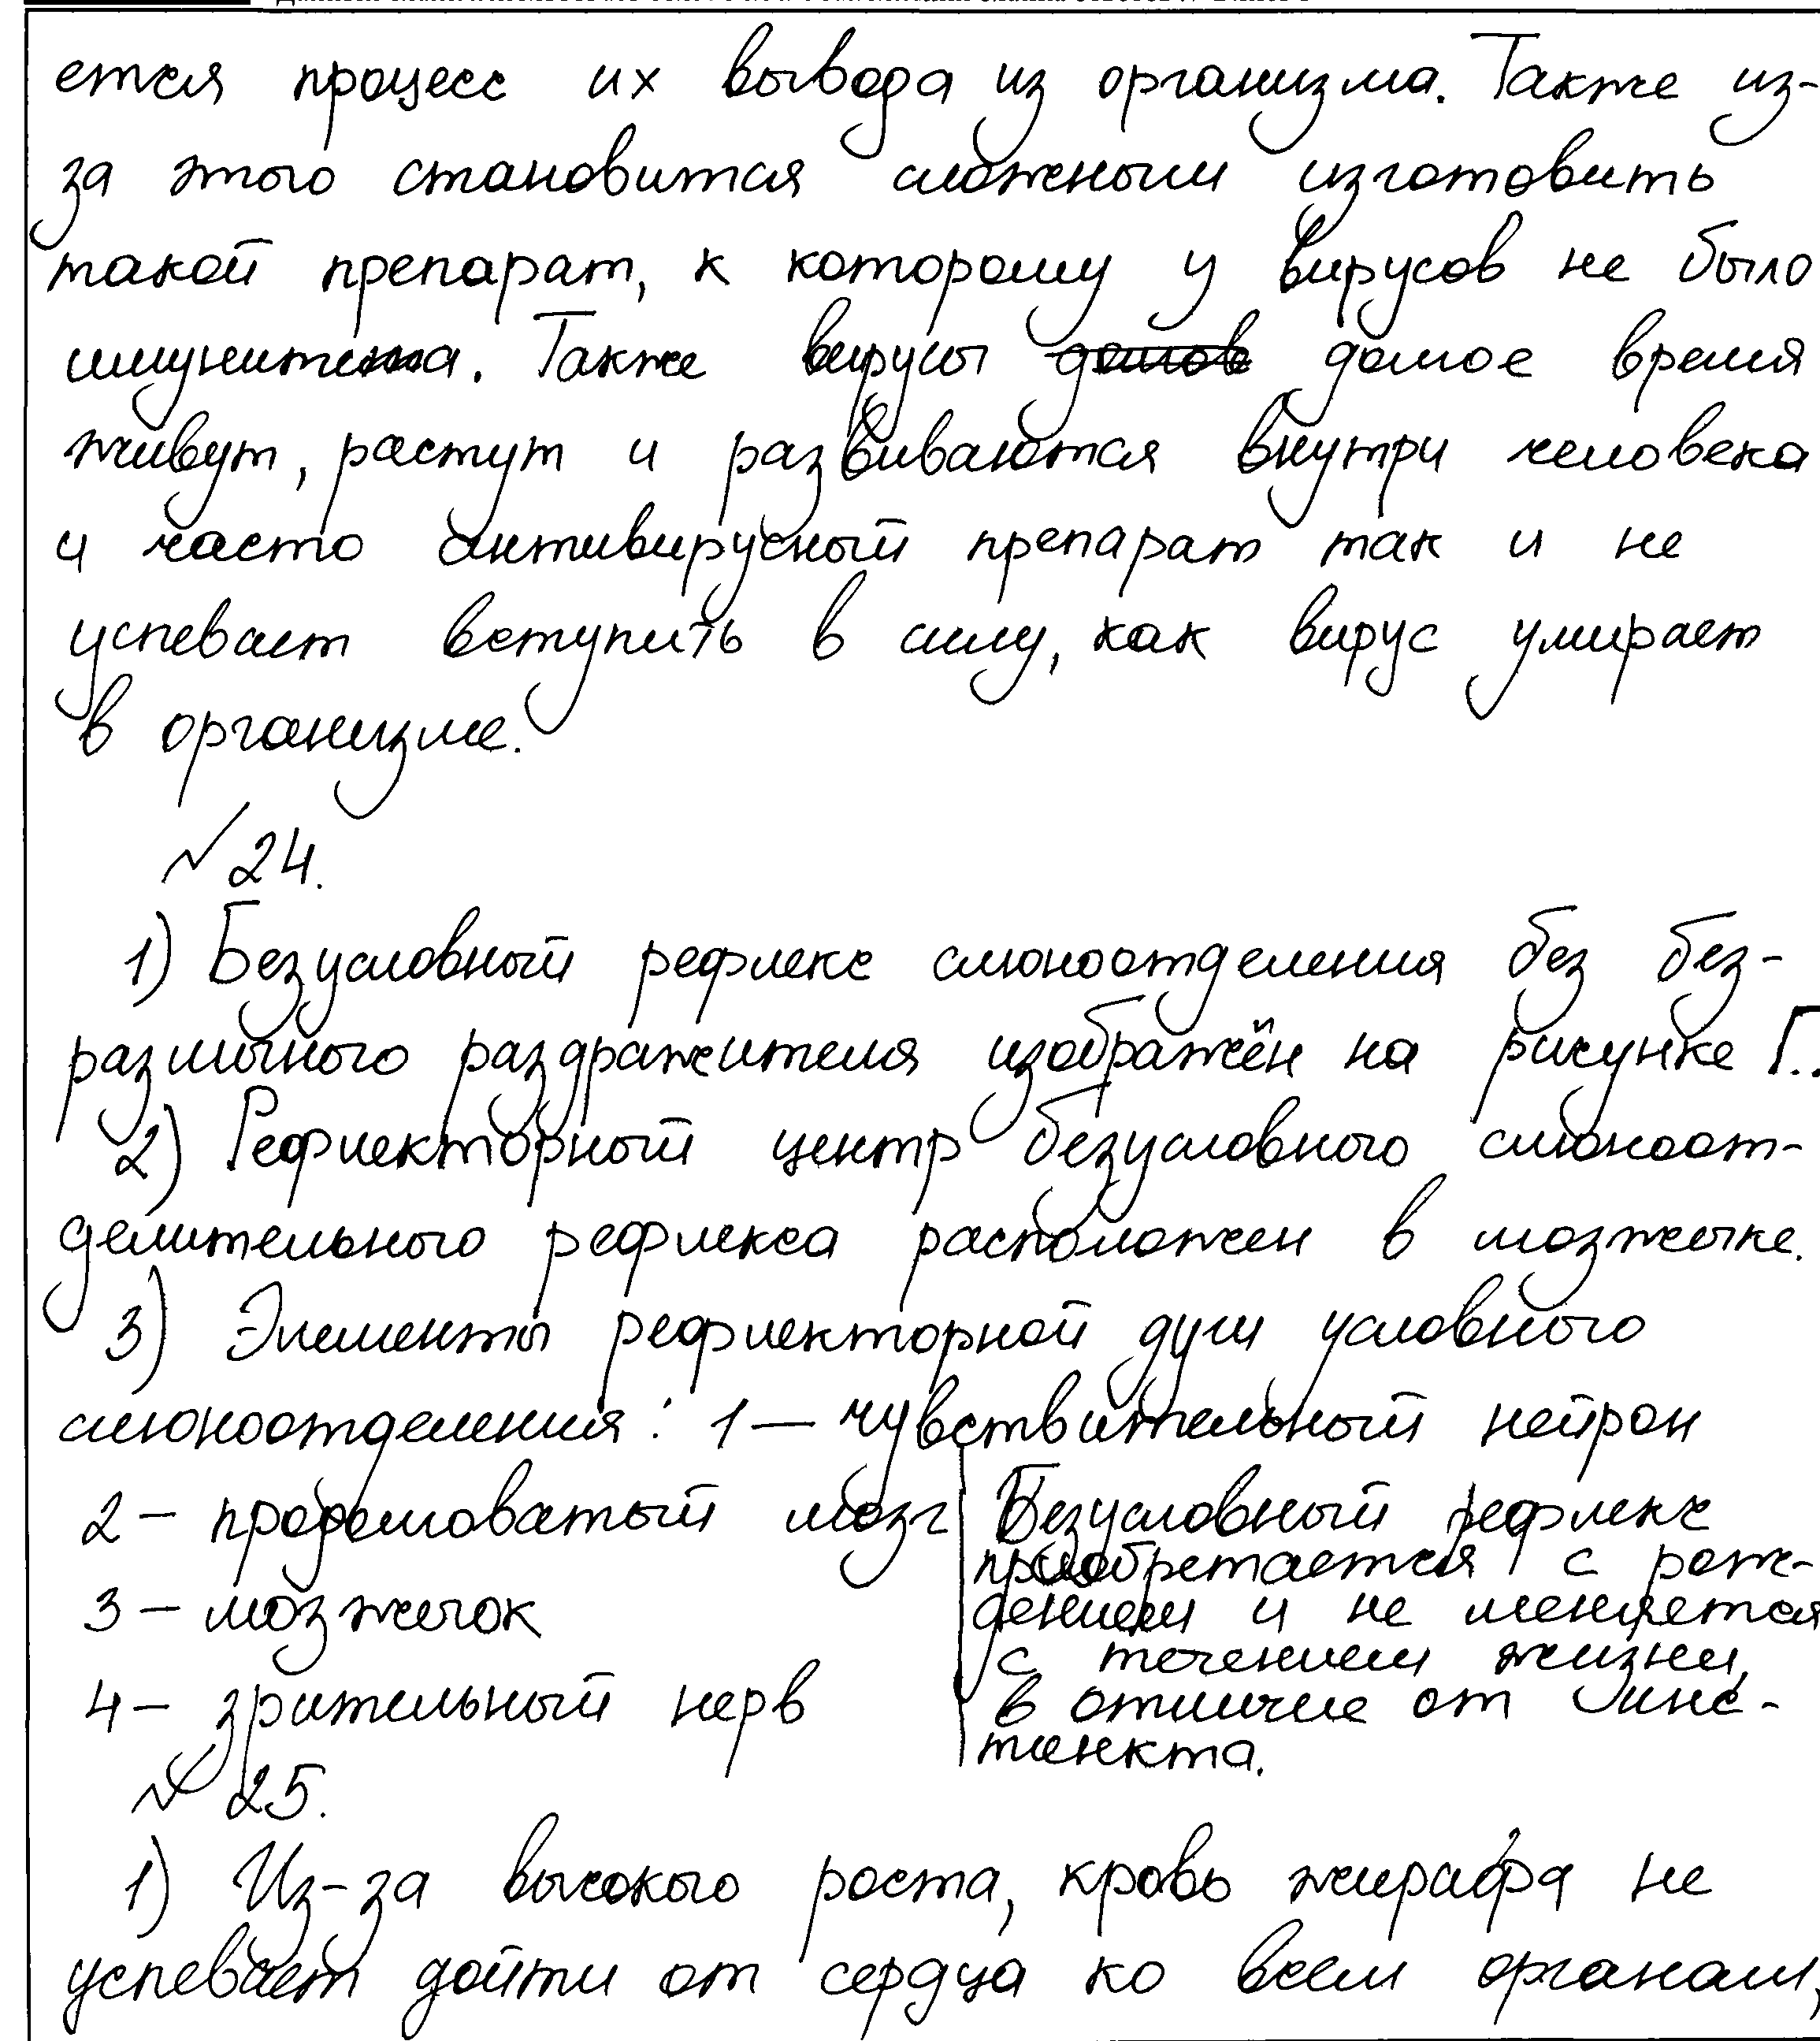 ется процесс их вывода из организма. Также из-
за этого становится сложным изготовить
такой препарат, к которому у вирусов не было
имунитета. Также вирусы долгое время
живут, растут и развиваются внутри человека
и часто антивирусный препарат так и не
успевает вступить в силу, как вирус умирает
в организме.
№24.
1) Безусловный рефлекс слюноотделения без без-
различного раздражителя изображён на рисунке Г.
2) Рефлекторный центр безусловного слюноот-
делительного рефлекса расположен в мозжечке.
3) Элементы рефлекторной дуги условного
слюноотделения: 1 — чувствительный нейрон
2 — продолговатый мозг
3 — мозжечок
4 — зрительный нерв
Безусловный рефлекс
приобретается с рож-
дением и не меняется
с течением жизни,
в отличие от инс-
тинкта.
№25.
1) Из-за высокого роста, кровь жирафа не
успевает дойти от сердца ко всем органам,